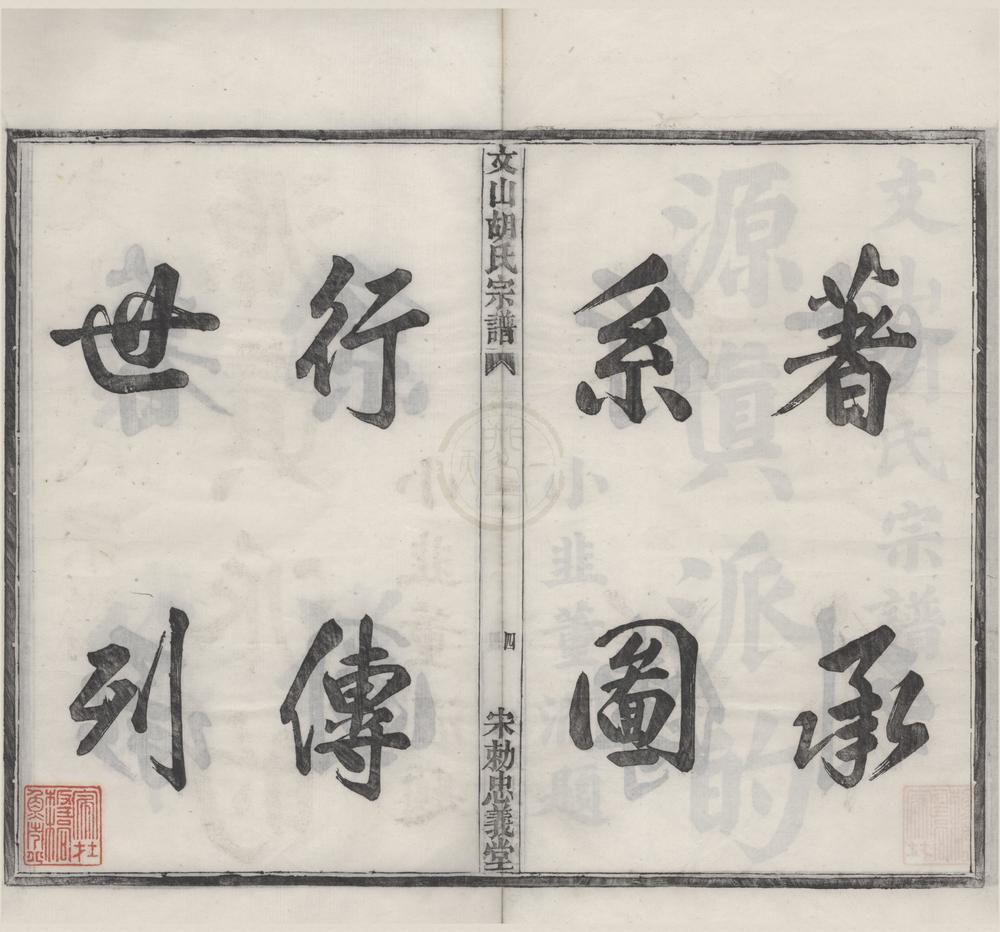 著承
系圖
文山胡氏宗譜 四 宋勅忠義堂
行傳
世列